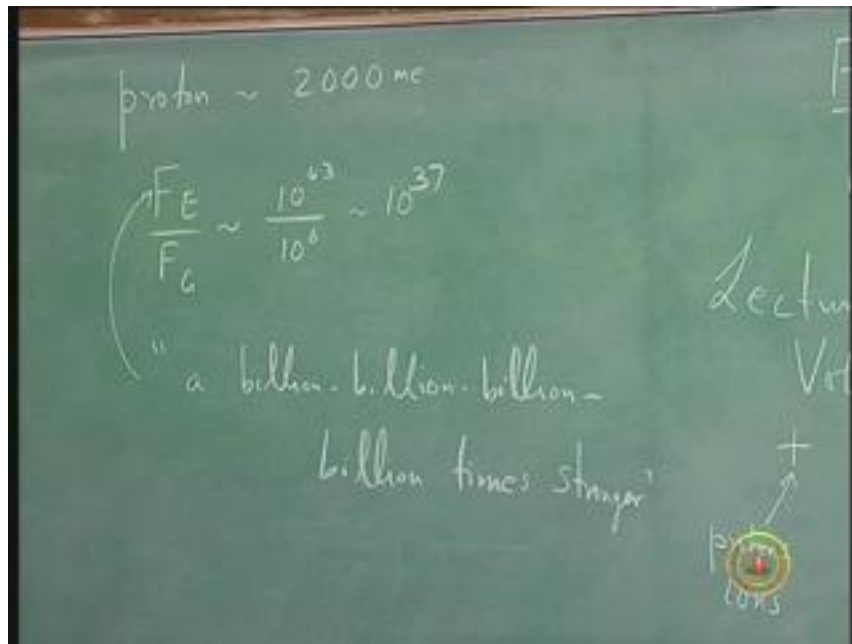 proton ~ 2000 me
F_E / F_G ~ 10^43 / 10^6 ~ 10^37
" a billion-billion-billion-
billion times stronger"
Lectur
Vol
+
ions